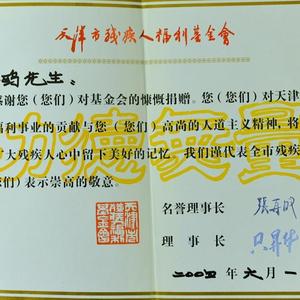 天津市残疾人福利基金會
鸿龙先生:
感谢您（您们）对基金会的慷慨捐赠。您（您们）对天津
福利事业的贡献与您（您们）高尚的人道主义精神，将
大残疾人心中留下美好的记忆，我们谨代表全市残疾
您们）表示崇高的敬意。
名誉理事长 张再旺
理 事 长
天津市残疾人福利基金会
二〇〇四 年 六 月 一